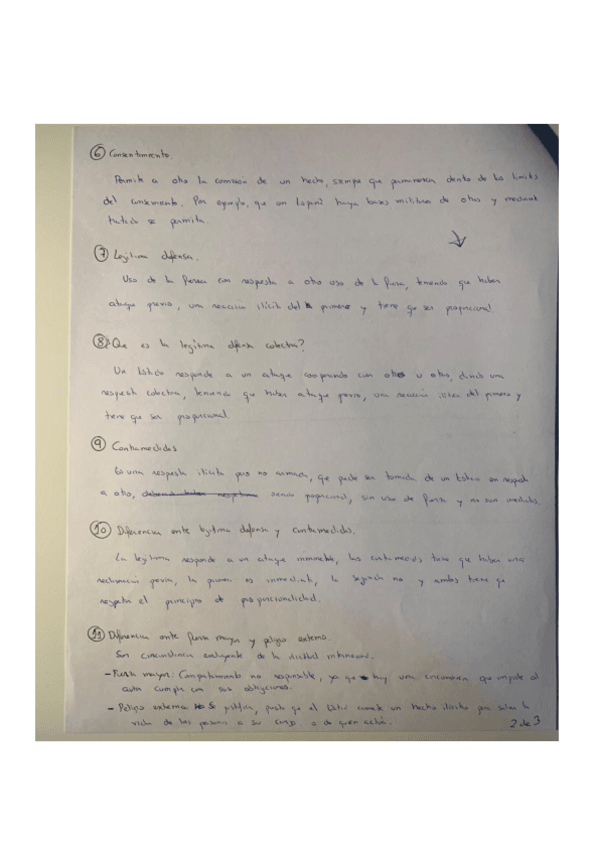 6 Consentimiento.
Permite a otro la comisión de un hecho, siempre que permanezca dentro de los límites
del consentimiento. Por ejemplo, que un haya bases militares de otros y mediante
tratado se permita.
7 Legítima defensa.
Uso de la fuerza con respuesta a otro uso de la fuerza, teniendo que haber
ataque previo, una reacción ilícita del primero y tiene que ser proporcional.
8 ¿Que es la legítima defensa colectiva?
Un Estado responde a un ataque cooperando con otro u otros, dando una
respuesta colectiva, teniendo que haber ataque previo, una reacción ilícita del primero y
tiene que ser proporcional.
9 Contramedidas
Es una respuesta ilícita pero no armada, que puede ser tomada de un Estado en respuesta
a otro, siendo proporcional, sin uso de fuerza y no son
10 Diferencias entre legítima defensa y contramedidas.
La legítima responde a un ataque inminente, las contramedidas tiene que haber una
reclamación previa, la primera es inmediata, la segunda no y ambas tiene que
respetar el principio de proporcionalidad.
11 Diferencia entre fuerza mayor y peligro extremo.
Son circunstancias excluyente de la ilicitud internacional.
- Fuerza mayor: Comportamiento no responsable, ya que hay una circunstancia que impide al
autor cumplir con sus obligaciones.
- Peligro extremo: Se justifica, puesto que el Estado comete un hecho ilícito para salvar la
vida de las personas a su cargo o de quien actúa.
2 de 3